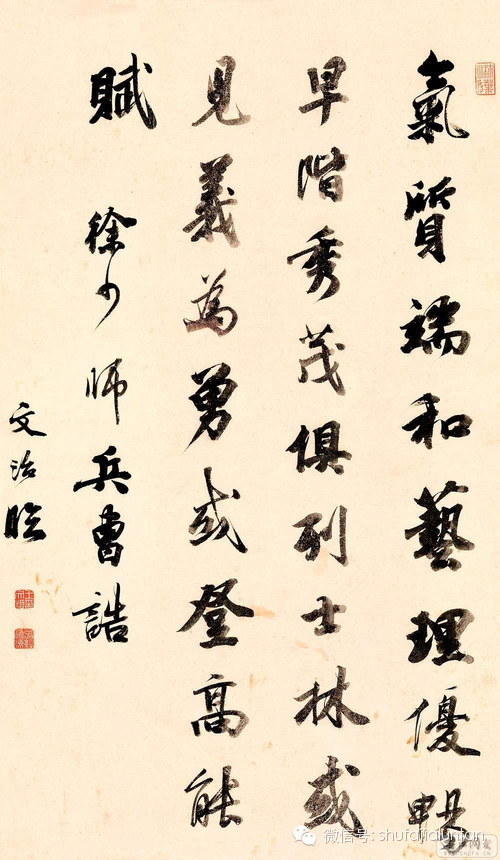 氣質端和藝理優暢
早階秀茂俱列士林或
見義為勇或登高能
賦 徐少師兵曹誥
文治臨
微信号: